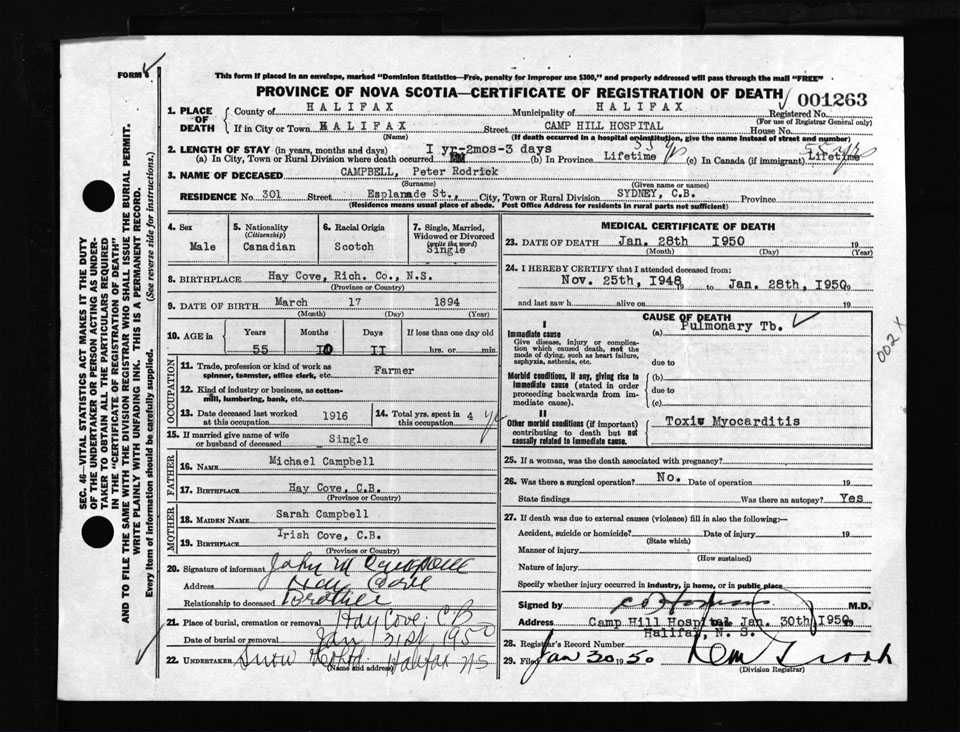 FORM 6
This form if placed in an envelope, marked "Dominion Statistics—Free, penalty for improper use $300," and properly addressed will pass through the mail "FREE"
PROVINCE OF NOVA SCOTIA—CERTIFICATE OF REGISTRATION OF DEATH
001263
1. PLACE OF DEATH
County of HALIFAX Municipality of HALIFAX Registered No.
(For use of Registrar General only)
If in City or Town HALIFAX Street CAMP HILL HOSPITAL House No.
(Name) (If death occurred in a hospital or institution, give the name instead of street and number)
2. LENGTH OF STAY (in years, months and days) I yr-2mos-3 days 55 yrs 55 yrs
(a) In City, Town or Rural Division where death occurred (b) In Province Lifetime (c) In Canada (if immigrant) Lifetime
3. NAME OF DECEASED CAMPBELL, Peter Rodrick
(Surname) (Given name or names)
RESIDENCE No. 301 Street Esplanade St., City, Town or Rural Division SYDNEY, C.B. Province
(Residence means usual place of abode. Post Office Address for residents in rural parts not sufficient)
4. Sex Male
5. Nationality (Citizenship) Canadian
6. Racial Origin Scotch
7. Single, Married, Widowed or Divorced (write the word) Single
8. BIRTHPLACE Hay Cove, Rich. Co., N.S.
(Province or Country)
9. DATE OF BIRTH March 17 1894
(Month) (Day) (Year)
10. AGE in Years Months Days If less than one day old
55 I0 II hrs. or min.
OCCUPATION
11. Trade, profession or kind of work as spinner, teamster, office clerk, etc. Farmer
12. Kind of industry or business, as cotton-mill, lumbering, bank, etc.
13. Date deceased last worked at this occupation 1916
14. Total yrs. spent in this occupation 4 yrs
15. If married give name of wife or husband of deceased Single
FATHER
16. NAME Michael Campbell
17. BIRTHPLACE Hay Cove, C.B.
(Province or Country)
MOTHER
18. MAIDEN NAME Sarah Campbell
19. BIRTHPLACE Irish Cove, C.B.
(Province or Country)
20. Signature of informant John M Campbell
Address Hay Cove
Relationship to deceased Brother
21. Place of burial, cremation or removal Hay Cove, C B
Date of burial or removal Jan 31st 1950
22. UNDERTAKER Snow Halifax N S
(Name and address)
MEDICAL CERTIFICATE OF DEATH
23. DATE OF DEATH Jan. 28th I950 19
(Month) (Day) (Year)
24. I HEREBY CERTIFY that I attended deceased from:
Nov. 25th, I948 19 to Jan. 28th, I950 19
and last saw h alive on 19
CAUSE OF DEATH
I
Immediate cause (a) Pulmonary Tb.
Give disease, injury or complication which caused death, not the mode of dying, such as heart failure, asphyxia, asthenia, etc. due to
Morbid conditions, if any, giving rise to immediate cause (stated in order proceeding backwards from immediate cause). (b)
due to
(c)
II
Other morbid conditions (if important) contributing to death but not causally related to immediate cause. Toxic Myocarditis
002 X
25. If a woman, was the death associated with pregnancy?
26. Was there a surgical operation? No. Date of operation 19
State findings Was there an autopsy? Yes
27. If death was due to external causes (violence) fill in also the following:—
Accident, suicide or homicide? Date of injury 19
(State which)
Manner of injury
(How sustained)
Nature of injury
Specify whether injury occurred in industry, in home, or in public place
Signed by M.D.
Address Camp Hill Hospital Date Jan. 30th, I950 19
Halifax, N. S.
28. Registrar's Record Number
29. Filed Jan 30 1950
(Division Registrar)
SEC. 46—VITAL STATISTICS ACT MAKES IT THE DUTY
OF THE UNDERTAKER OR PERSON ACTING AS UNDER-
TAKER TO OBTAIN ALL THE PARTICULARS REQUIRED
IN THE "CERTIFICATE OF REGISTRATION OF DEATH"
AND TO FILE THE SAME WITH THE DIVISION REGISTRAR WHO SHALL ISSUE THE BURIAL PERMIT.
WRITE PLAINLY WITH UNFADING INK. THIS IS A PERMANENT RECORD.
Every item of information should be carefully supplied. (See reverse side for instructions.)